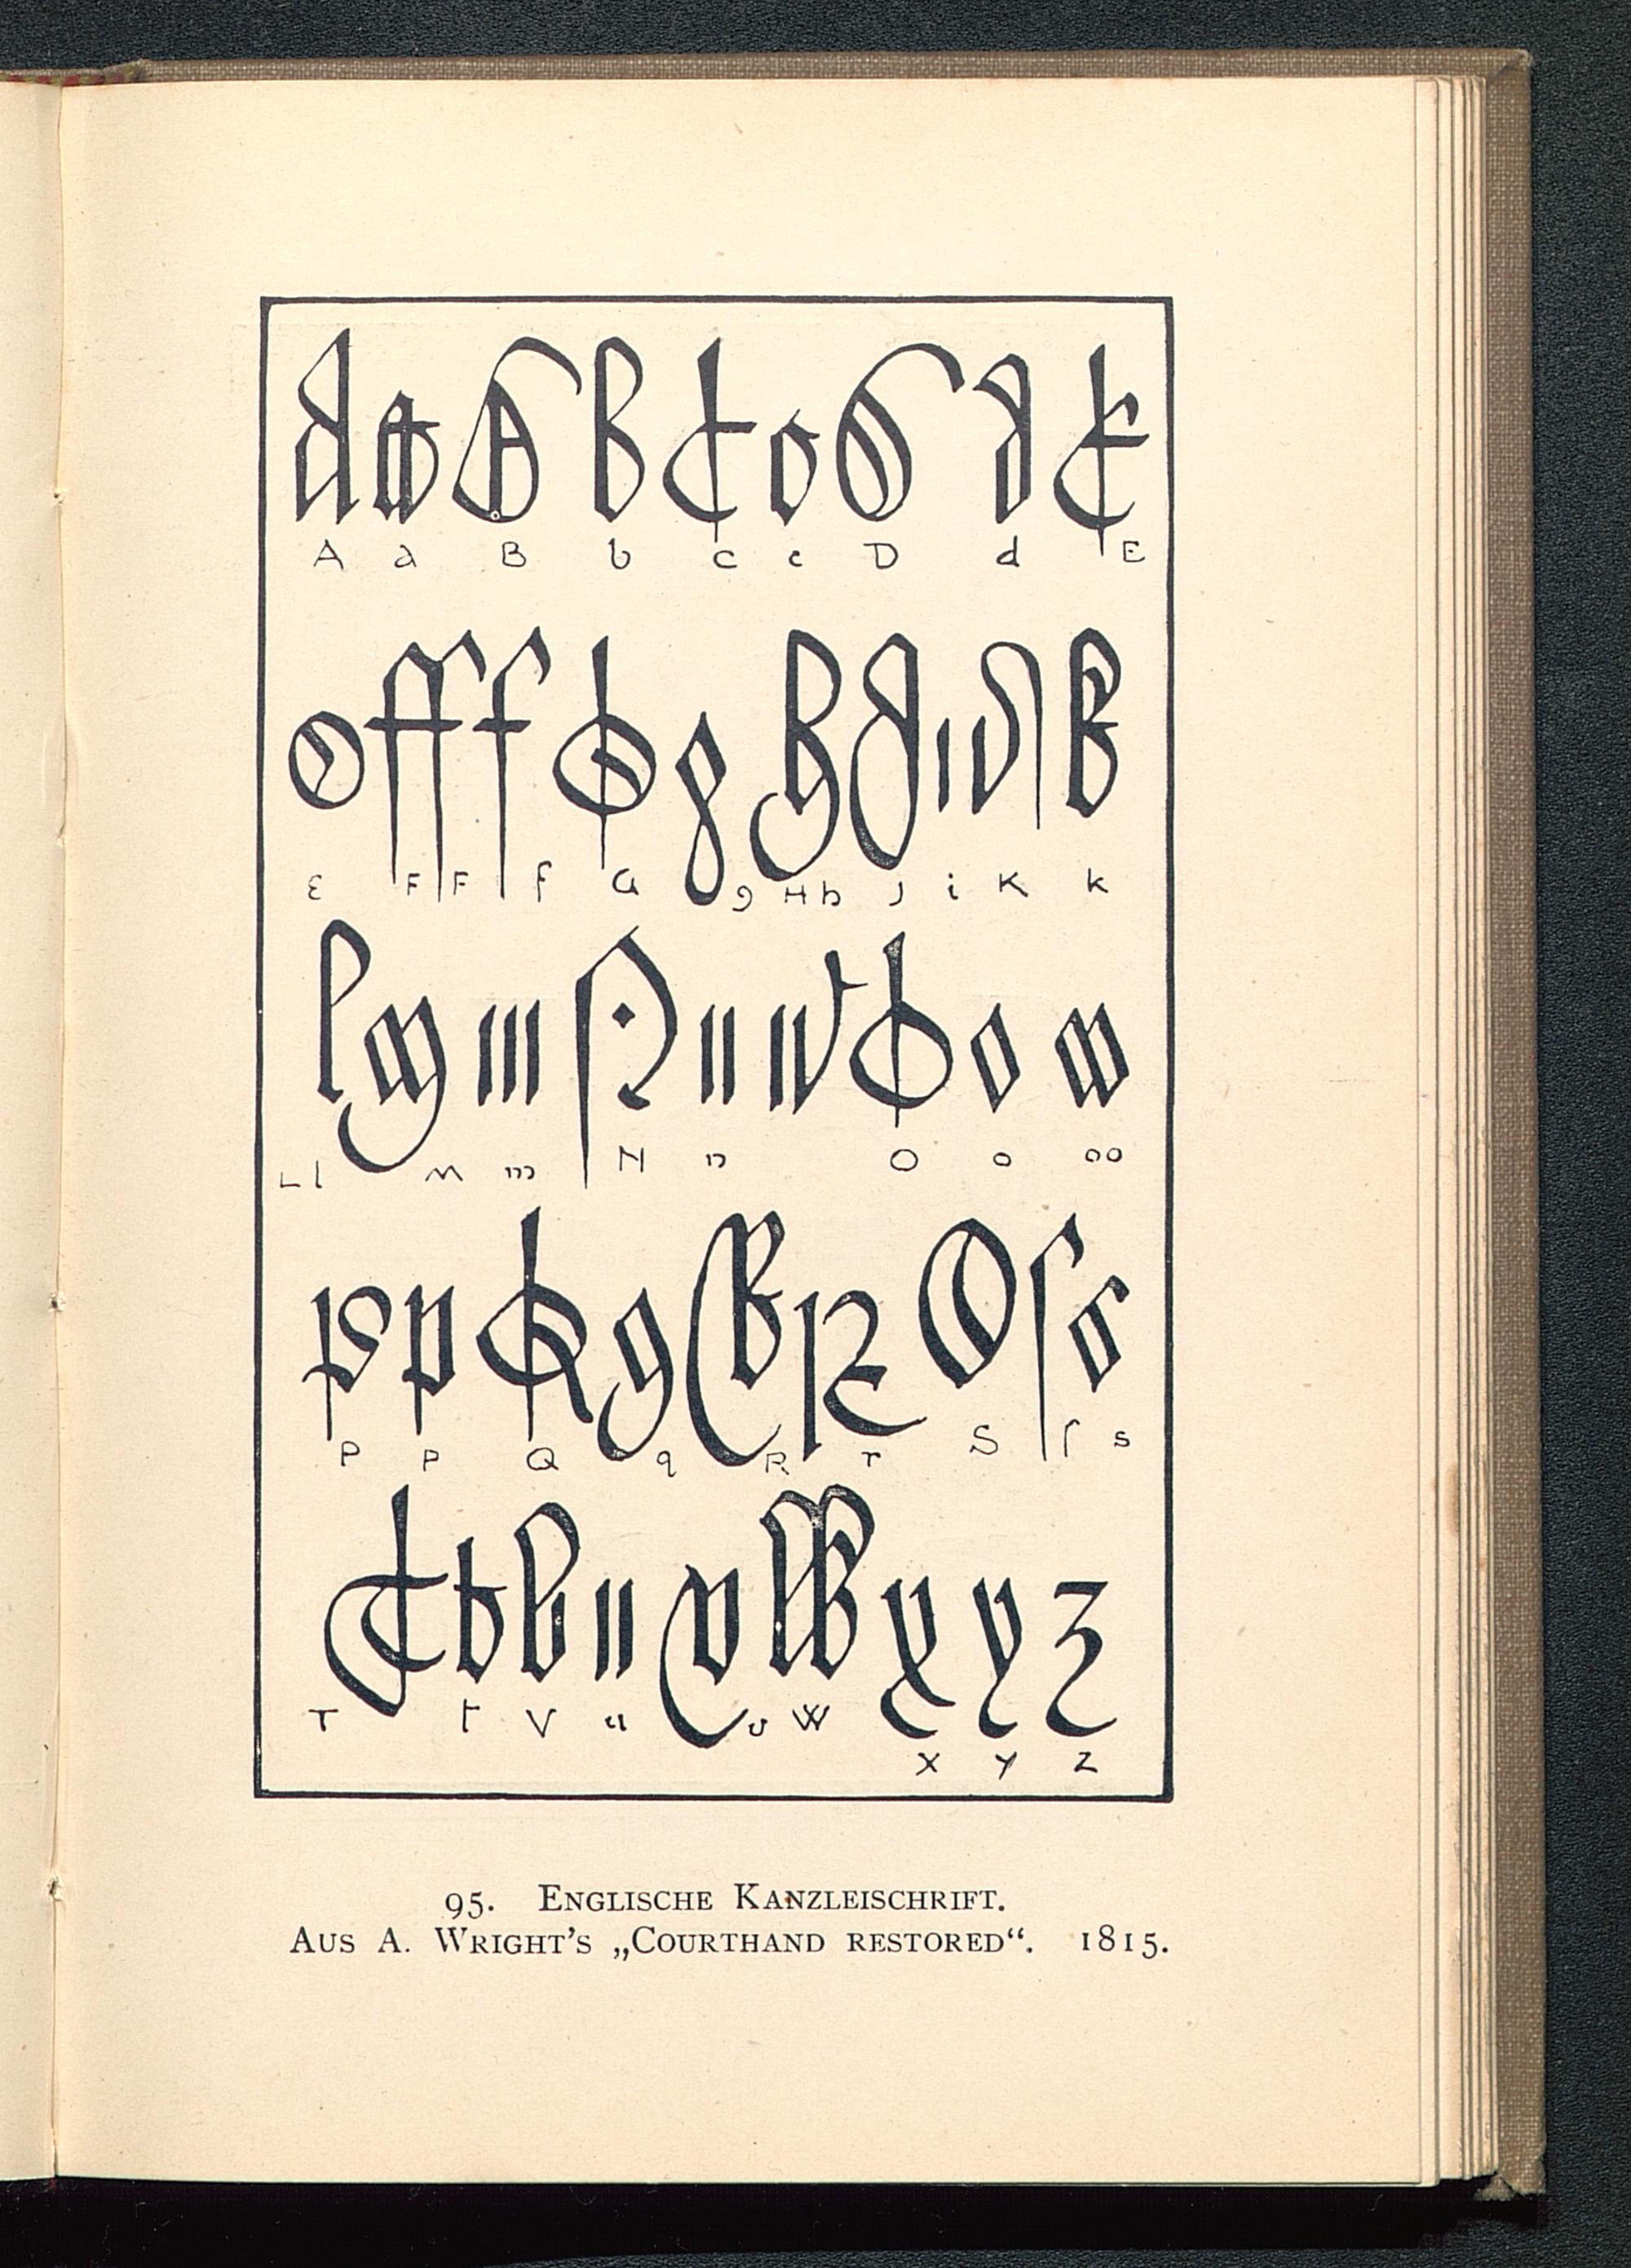 A a B b C c D d E
E F F f G g H h J i K k
L l M m N n O o oo
P p Q q R r S ſ s
T t V u v W
X Y Z
95. Englische Kanzleischrift.
Aus A. Wright’s „Courthand restored“. 1815.